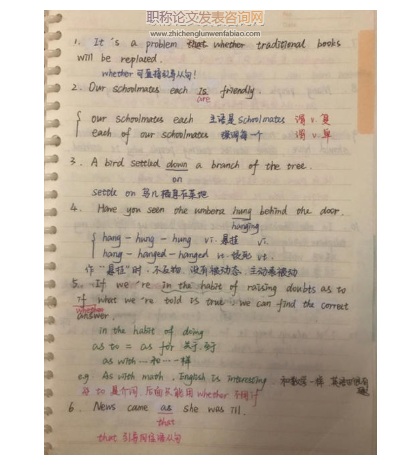 职称论文发表咨询网
www.zhichenglunwenfabiao.com
1. It's a problem that whether traditional books
will be replaced.
whether 可直接引导从句!
2. Our schoolmates each is friendly.
are
our schoolmates each 主语是 schoolmates 谓 v. 复
each of our schoolmates 强调每一个 谓 v. 单
3. A bird settled down a branch of the tree.
on
settle on 鸟儿栖息在某地
4. Have you seen the umbera hung behind the door.
hanging
hang - hung - hung vi. 悬挂 vi.
hang - hanged - hanged vt. 绞死 vt.
作"悬挂"时, 不及物, 没有被动态, 主动表被动
5. If we're in the habit of raising doubts as to
if what we're told is true, we can find the correct
whether
answer.
in the habit of doing
as to = as for 关于, 至于
as with 和…一样
e.g. As with math, English is interesting. 和数学一样
to 是介词, 后面只能用 whether 不用 if
6. News came as she was ill.
that
that 引导同位语从句